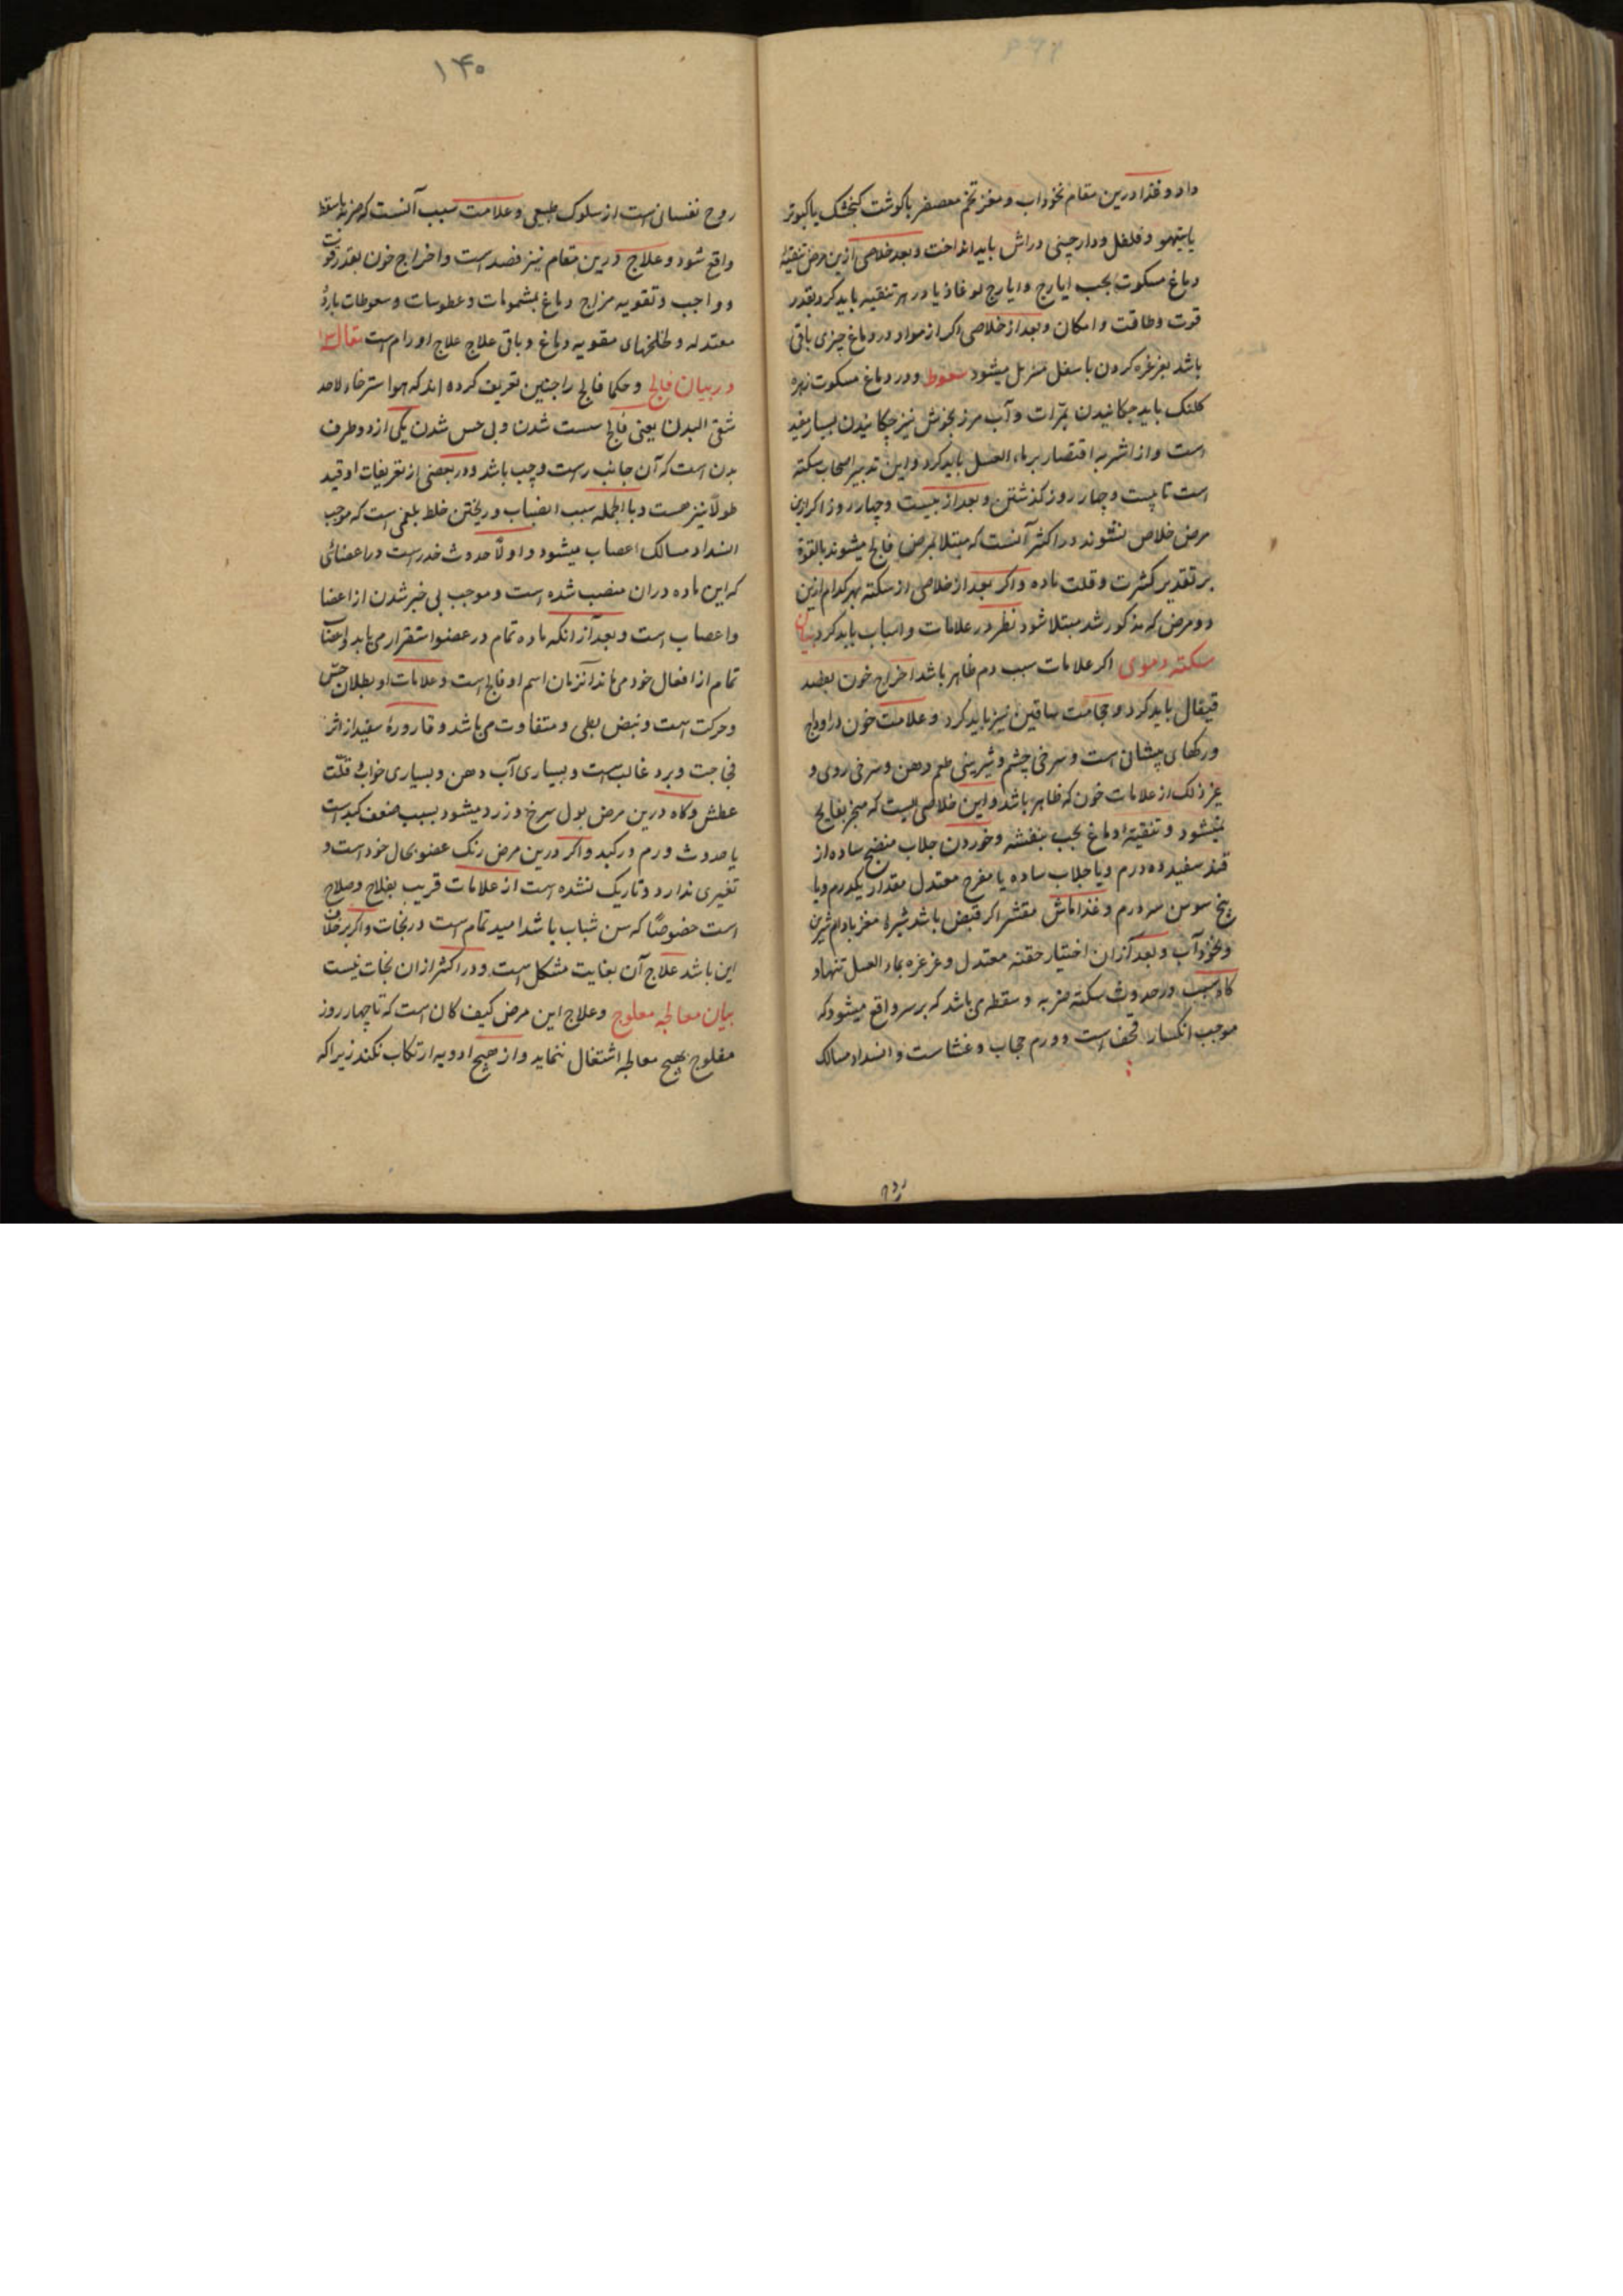 داد و غذا درین مقام نخوداب و مغز تخم معصفر با کوشت کنجشک یا کبوتر
یا تیهو و فلفل و دارچینی دراش باید انداخت و بعد خلاصی ازین مرض تنقیهٔ
دماغ مسکوت بحب ایارج و ایارج لوغاذیا در هر تنقیه باید کرد بقدر
قوت و طاقت و امکان و بعد از خلاصی اکر از مواد در دماغ چیزی باقی
باشد بغرغره کردن باسفل منزل میشود سعوط و در دماغ مسکوت زهره
کلنک باید چکانیدن بمرّات و آب مرزنجوش نیز چکانیدن بسیار مفید
است و از اشربه اقتصار بر ماء العسل باید کرد و این تدبیر اصحاب سکته
است تا بیست و چهار روز کذشتن و بعد از بیست و چهار روز اکر ازین
مرض خلاص نشوند در اکثر آنست که مبتلا بمرض فالج میشوند یا لقوة
بر تقدیر کثرت و قلت ماده و اکر بعد از خلاصی از سکته بهر کدام ازین
دو مرض که مذکور شد مبتلا شود نظر در علامات و اسباب باید کرد بیان
سکته دموی اکر علامات سبب دم ظاهر باشد اخراج خون بفصد
قیفال باید کرد و حجامت ساقین نیز باید کرد و علامت خون در اوداج
و رکهای پیشان است و سرخی چشم و شیرینی طعم دهن و سرخی روی و
غیر ذلک از علامات خون که ظاهر باشد و این خلاصی ایست که منجر بفالج
نمیشود و تنقیهٔ دماغ بحب بنفشه و خوردن جلاب منضج ساده از
قند سفید ده درم و یا جلاب ساده یا مفرح معتدل مقدار یکدرم و یا
بیخ سوسن سه درم و غذا ماش مقشر اکر قبض باشد شیره مغز بادام شیرین
و نخودآب و بعد از آن اختیار حقنه معتدل و غرغره بماء العسل تنها و
کاه سبب در حدوث سکته ضربه و سقطه می باشد که بر سر واقع میشود که
موجب انکسار قحف است و ورم حجاب و غشاست و انسداد مسالک
۱۴۰
روح نفسانی است از سلوک طبیعی و علامت سبب آنست که ضربه یا سقطه
واقع شود و علاج درین مقام نیز فصد است و اخراج خون بقدر قوت
و واجب و تقویه مزاج دماغ بمشمومات و عطوسات و سعوطات باردهٔ
معتدله و لخلخهای مقویه دماغ و باقی علاج علاج اورام است مقاله
در بیان فالج و حکما فالج را چنین تعریف کرده اند که هو استرخاء لاحد
شقی البدن یعنی فالج سست شدن و بی حس شدن یکی از دو طرف
بدن است که آن جانب راست و چپ باشد و در بعضی از تعریفات او قید
طولًا نیز هست و بالجمله سبب انصباب و ریختن خلط بلغمی است که موجب
انسداد مسالک اعصاب میشود و اولًا حدوث خدر است در اعضائی
که این ماده دران منصب شده است و موجب بی خبر شدن از اعضا
و اعصاب است و بعد از انکه ماده تمام در عضو استقرار می یابد و اعضا
تمام از افعال خود می ماند آنزمان اسم او فالج است و علامات او بطلان حس
و حرکت است و نبض بطی و متفاوت می باشد و قارورهٔ سفید از اثر
فجاجت و برد غالب است و بسیاری آب دهن و بسیاری خواب و قلّت
عطش و کاه درین مرض بول سرخ و زرد میشود بسبب ضعف کبد است
یا حدوث ورم در کبد و اکر درین مرض رنک عضو بحال خود است و
تغیری ندارد و تاریک نشده است از علامات قریب بفلاح و صلاح
است خصوصًا که سن شباب باشد امید تمام است در نجات و اکر بر خلاف
این باشد علاج آن بغایت مشکل است و در اکثر ازان نجات نیست
بیان معالجه مفلوج و علاج این مرض کیف کان است که تا چهار روز
مفلوج بهیچ معالجه اشتغال ننماید و از هیچ ادویه ارتکاب نکند زیرا که